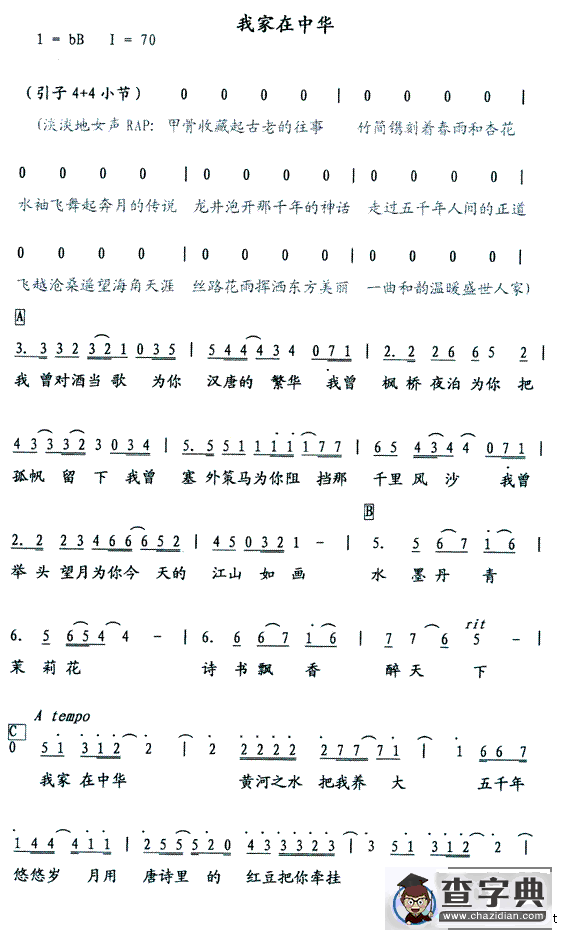 我家在中华
1 = bB I = 70
(引子 4+4 小节) 0 0 0 0 | 0 0 0 0 |
(淡淡地女声 RAP: 甲骨收藏起古老的往事 竹简镌刻着春雨和杏花
0 0 0 0 | 0 0 0 0 | 0 0 0 0 |
水袖飞舞起奔月的传说 龙井泡开那千年的神话 走过五千年人间的正道
0 0 0 0 | 0 0 0 0 | 0 0 0 0 |
飞越沧桑遥望海角天涯 丝路花雨挥洒东方美丽 一曲和韵温暖盛世人家)
A
3. 3 3 2 3 2 1 0 3 5 | 5 4 4 4 3 4 0 7 1 | 2. 2 2 6 6 5 2 |
我 曾对酒当 歌 为你 汉唐的 繁华 我曾 枫桥夜泊为你 把
4 3 3 3 3 2 3 0 3 4 | 5. 5 5 1 1 1 1 1 7 7 | 6 5 4 3 4 4 0 7 1 |
孤帆 留 下我曾 塞 外策马为你阻 挡那 千里 风 沙 我曾
B
2. 2 2 3 4 6 6 6 5 2 | 4 5 0 3 2 1 - | 5. 5 6 7 1 6 |
举 头 望月为你今 天的 江山 如 画 水 墨 丹 青
rit
6. 5 6 5 4 4 - | 6. 6 6 7 1 6 | 7 7 6 5 - |
茉 莉 花 诗 书 飘 香 醉 天 下
A tempo
C
0 5 1 3 1 2 2 | 2 2 2 2 2 2 7 7 7 1 | 1 6 6 7
我家 在中华 黄河之水 把我养 大 五千年
1 4 4 4 1 1 | 2 5 5 5 2 0 4 3 3 3 2 3 | 3 5 1 3 1 2 2 |
悠悠岁 月用 唐诗里 的 红豆把你牵挂
查字典
www.chazidian.com
t